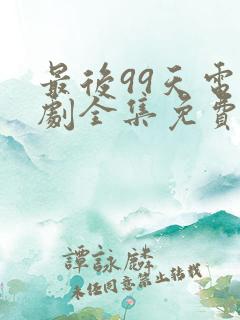 最後99天電
劇全集免費
譚詠麟
未任同意禁止转载